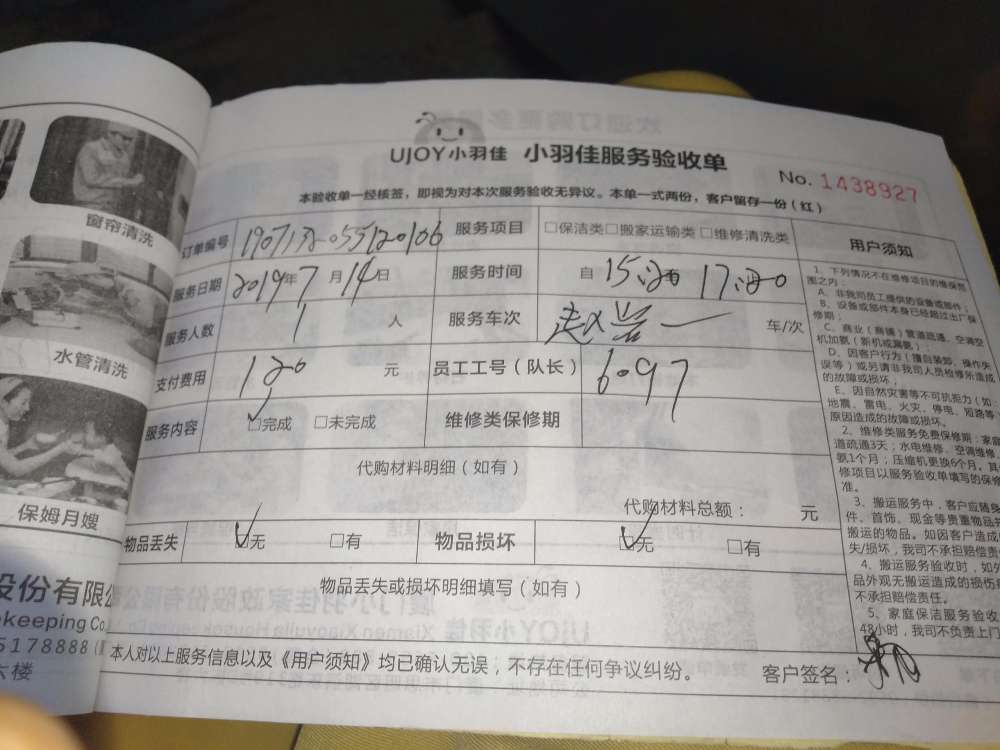 窗帘清洗
水管清洗
保姆月嫂
股份有限公
ekeeping Co.
5178888
六楼
UJOY小羽佳 小羽佳服务验收单
No. 1438927
本验收单一经核签，即视为对本次服务验收无异议。本单一式两份，客户留存一份（红）
订单编号
服务项目 □保洁类□搬家运输类□维修清洗类
服务日期 2019年7月14日 服务时间 自 15:20 17:20
服务人数 1 人 服务车次 一 车/次
支付费用 120 元 员工工号（队长） 6097
服务内容 ☑完成 □未完成 维修类保修期
代购材料明细（如有）
代购材料总额： 元
物品丢失 ☑无 □有 物品损坏 ☑无 □有
物品丢失或损坏明细填写（如有）
本人对以上服务信息以及《用户须知》均已确认无误，不存在任何争议纠纷。 客户签名：
用户须知
1、下列情况不在维修项目的维保范
围之内：
A、非我司员工提供的设备或部件；
B、设备或部件本身已经超过出厂保
修期；
C、商业（商铺）管道疏通、空调空
机加氨（新机或漏氨）；
D、因客户行为（擅自装卸、操作失
误等）或另请非我司人员检修所造成
的故障或损坏；
E、因自然灾害等不可抗力（如：
地震、雷电、火灾、停电、短路等
原因造成的故障或损坏。
2、维修类服务免费保修期：家庭
道疏通3天；水电维修、空调维修、
氨1个月；压缩机更换6个月。其
修项目以服务验收单填写的保修
准。
3、搬运服务中，客户应随身
件、首饰、现金等贵重物品
搬运的物品。如因客户造成
失/损坏，我司不承担赔偿责
4、搬运服务验收时，如外
品外观无搬运造成的损伤
不承担赔偿责任。
5、家庭保洁服务验收
48小时，我司不负责上门